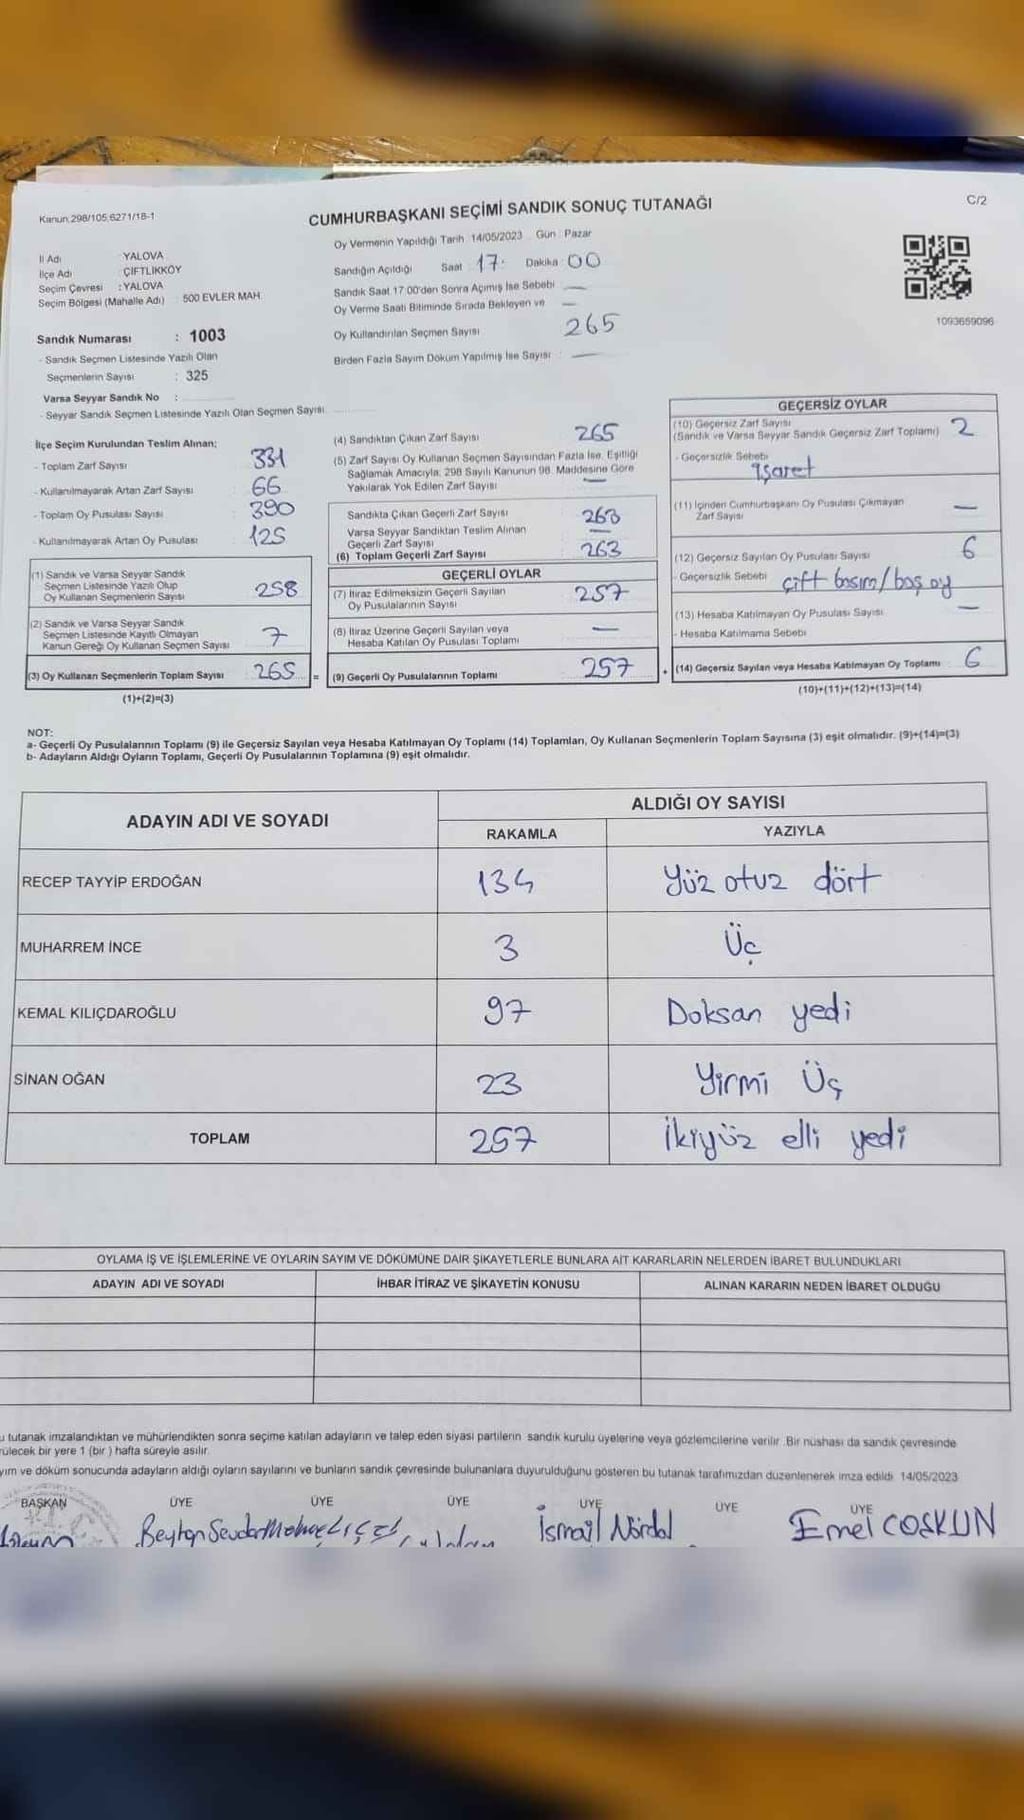 Kanun:298/105;6271/18-1
C/2
CUMHURBAŞKANI SEÇİMİ SANDIK SONUÇ TUTANAĞI
Oy Vermenin Yapıldığı Tarih 14/05/2023 Gün Pazar
İl Adı YALOVA
İlçe Adı ÇİFTLİKKÖY
Seçim Çevresi : YALOVA
Seçim Bölgesi (Mahalle Adı) 500 EVLER MAH.
Sandığın Açıldığı Saat 17: Dakika 00
Sandık Saat 17:00'den Sonra Açımış İse Sebebi —
Oy Verme Saati Bitiminde Sırada Bekleyen ve —
Oy Kullandırılan Seçmen Sayısı 265
Birden Fazla Sayım Döküm Yapılmış İse Sayısı : —
1093659096
Sandık Numarası : 1003
- Sandık Seçmen Listesinde Yazılı Olan
Seçmenlerin Sayısı : 325
Varsa Seyyar Sandık No :
- Seyyar Sandık Seçmen Listesinde Yazılı Olan Seçmen Sayısı
İlçe Seçim Kurulundan Teslim Alınan;
- Toplam Zarf Sayısı 331
- Kullanılmayarak Artan Zarf Sayısı 66
- Toplam Oy Pusulası Sayısı 390
- Kullanılmayarak Artan Oy Pusulası 125
(1) Sandık ve Varsa Seyyar Sandık
Seçmen Listesinde Yazılı Olup
Oy Kullanan Seçmenlerin Sayısı 258
(2) Sandık ve Varsa Seyyar Sandık
Seçmen Listesinde Kayıtlı Olmayan
Kanun Gereği Oy Kullanan Seçmen Sayısı 7
(3) Oy Kullanan Seçmenlerin Toplam Sayısı 265 =
(1)+(2)=(3)
(4) Sandıktan Çıkan Zarf Sayısı 265
(5) Zarf Sayısı Oy Kullanan Seçmen Sayısından Fazla İse, Eşitliği
Sağlamak Amacıyla, 298 Sayılı Kanunun 98. Maddesine Göre
Yakılarak Yok Edilen Zarf Sayısı —
Sandıkta Çıkan Geçerli Zarf Sayısı 263
Varsa Seyyar Sandıktan Teslim Alınan
Geçerli Zarf Sayısı —
(6) Toplam Geçerli Zarf Sayısı 263
GEÇERLİ OYLAR
(7) İtiraz Edilmeksizin Geçerli Sayılan
Oy Pusulalarının Sayısı 257
(8) İtiraz Üzerine Geçerli Sayılan veya
Hesaba Katılan Oy Pusulası Toplamı —
(9) Geçerli Oy Pusulalarının Toplamı 257 +
GEÇERSİZ OYLAR
(10) Geçersiz Zarf Sayısı
(Sandık ve Varsa Seyyar Sandık Geçersiz Zarf Toplamı) 2
- Geçersizlik Sebebi
işaret
(11) İçinden Cumhurbaşkanı Oy Pusulası Çıkmayan
Zarf Sayısı —
(12) Geçersiz Sayılan Oy Pusulası Sayısı 6
- Geçersizlik Sebebi çift basım/boş oy
(13) Hesaba Katılmayan Oy Pusulası Sayısı —
- Hesaba Katılmama Sebebi
(14) Geçersiz Sayılan veya Hesaba Katılmayan Oy Toplamı 6
(10)+(11)+(12)+(13)=(14)
NOT:
a- Geçerli Oy Pusulalarının Toplamı (9) ile Geçersiz Sayılan veya Hesaba Katılmayan Oy Toplamı (14) Toplamları, Oy Kullanan Seçmenlerin Toplam Sayısına (3) eşit olmalıdır. (9)+(14)=(3)
b- Adayların Aldığı Oyların Toplamı, Geçerli Oy Pusulalarının Toplamına (9) eşit olmalıdır.
ADAYIN ADI VE SOYADI
ALDIĞI OY SAYISI
RAKAMLA YAZIYLA
RECEP TAYYİP ERDOĞAN 134 Yüz otuz dört
MUHARREM İNCE 3 Üç
KEMAL KILIÇDAROĞLU 97 Doksan yedi
SİNAN OĞAN 23 Yirmi Üç
TOPLAM 257 İkiyüz elli yedi
OYLAMA İŞ VE İŞLEMLERİNE VE OYLARIN SAYIM VE DÖKÜMÜNE DAİR ŞİKAYETLERLE BUNLARA AİT KARARLARIN NELERDEN İBARET BULUNDUKLARI
ADAYIN ADI VE SOYADI İHBAR İTİRAZ VE ŞİKAYETİN KONUSU ALINAN KARARIN NEDEN İBARET OLDUĞU
u tutanak imzalandıktan ve mühürlendikten sonra seçime katılan adayların ve talep eden siyasi partilerin sandık kurulu üyelerine veya gözlemcilerine verilir. Bir nüshası da sandık çevresinde
rülecek bir yere 1 (bir ) hafta süreyle asılır.
yım ve döküm sonucunda adayların aldığı oyların sayılarını ve bunların sandık çevresinde bulunanlara duyurulduğunu gösteren bu tutanak tarafımızdan düzenlenerek imza edildi. 14/05/2023
BAŞKAN ÜYE ÜYE ÜYE ÜYE ÜYE ÜYE
İsmail Emel COŞKUN